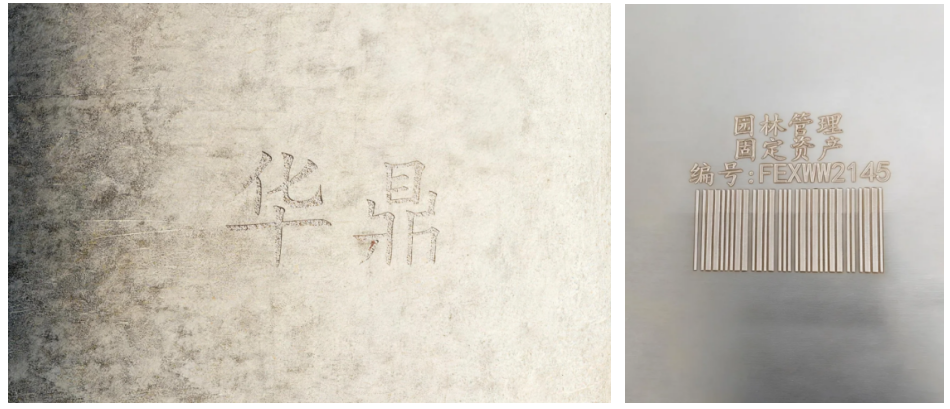 华鼎
园林管理
固定资产
编号:FEXWW2145